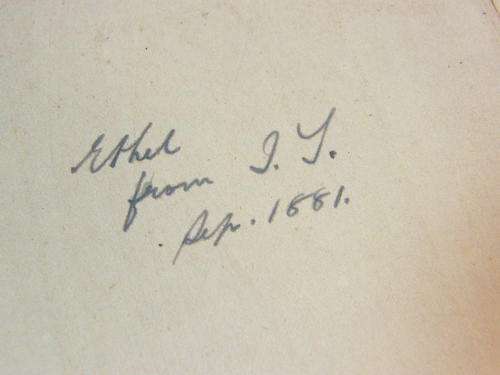 Ethel
from I. Y.
Sep. 1881.